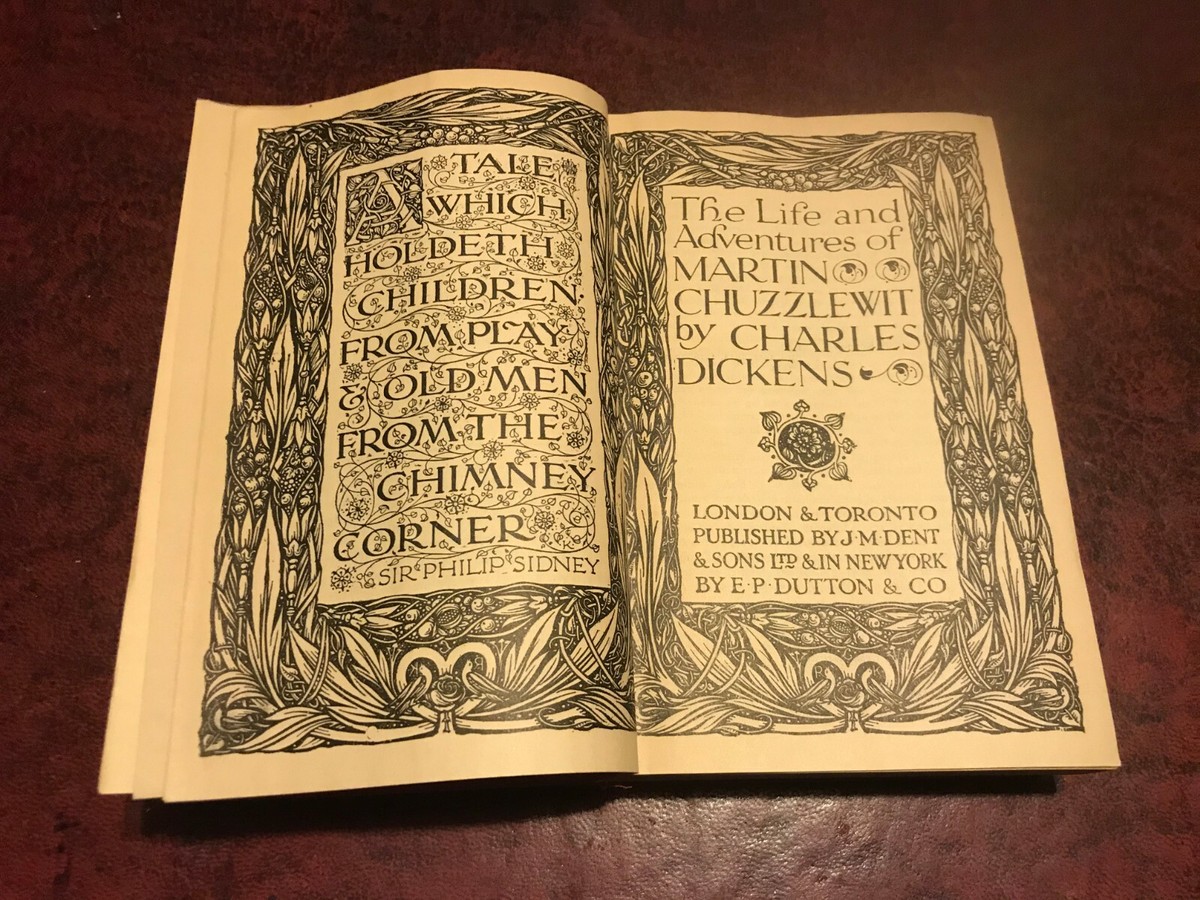 A TALE
WHICH
HOLDETH
CHILDREN
FROM PLAY
& OLD MEN
FROM THE
CHIMNEY
CORNER
SIR PHILIP SIDNEY
The Life and
Adventures of
MARTIN
CHUZZLEWIT
by CHARLES
DICKENS
LONDON & TORONTO
PUBLISHED BY J·M·DENT
& SONS LTD & IN NEW YORK
BY E·P·DUTTON & CO